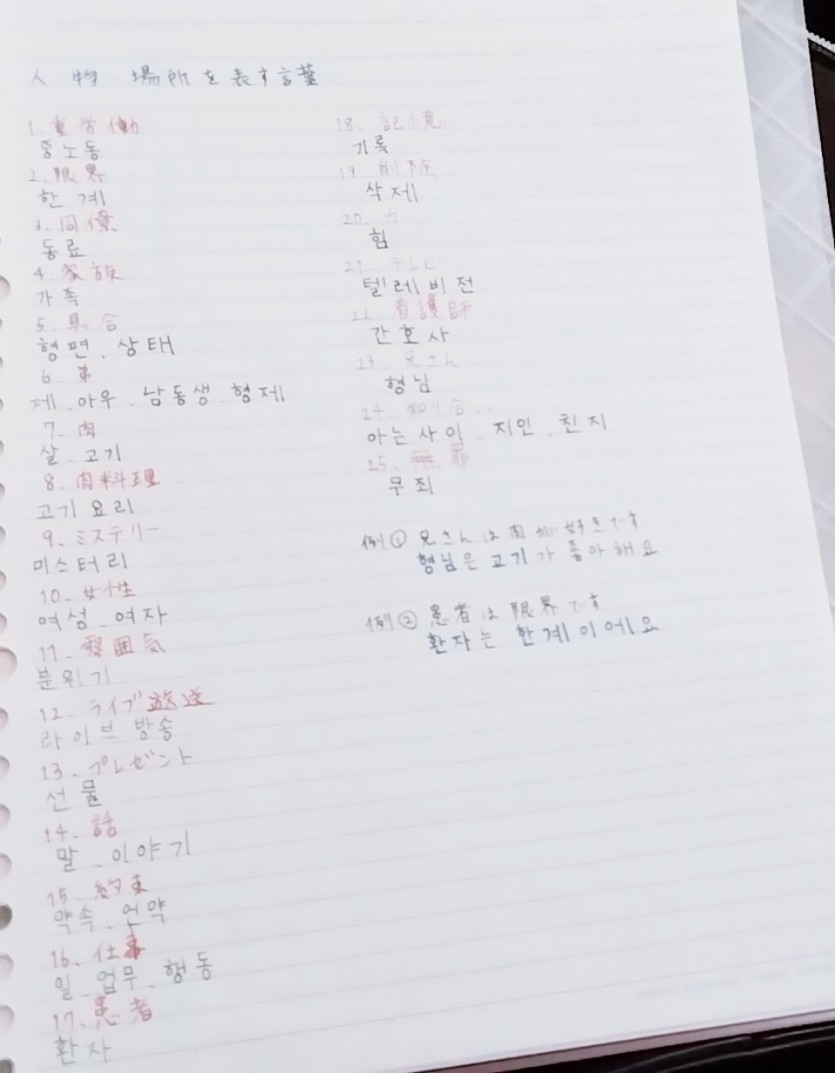 人物、場所を表す言葉
1. 重労働
중노동
2. 限界
한계
3. 同僚
동료
4. 家族
가족
5. 具合
형편、상태
6. 弟
제、아우、남동생、형제
7. 肉
살、고기
8. 肉料理
고기 요리
9. ミステリー
미스터리
10. 女性
여성、여자
11. 雰囲気
분위기
12. ライブ放送
라이브 방송
13. プレゼント
선물
14. 話
말、이야기
15. 約束
약속、언약
16. 仕事
일、업무、행동
17. 患者
환자
18. 記憶
기록
19. 削除
삭제
20. 力
힘
21. テレビ
텔레비전
22. 看護師
간호사
23. 兄さん
형님
24. 知り合い
아는 사이、지인、친지
25. 無罪
무죄
例① 兄さんは肉が好きです
형님은 고기가 좋아해요
例② 患者は限界です
환자는 한계이에요